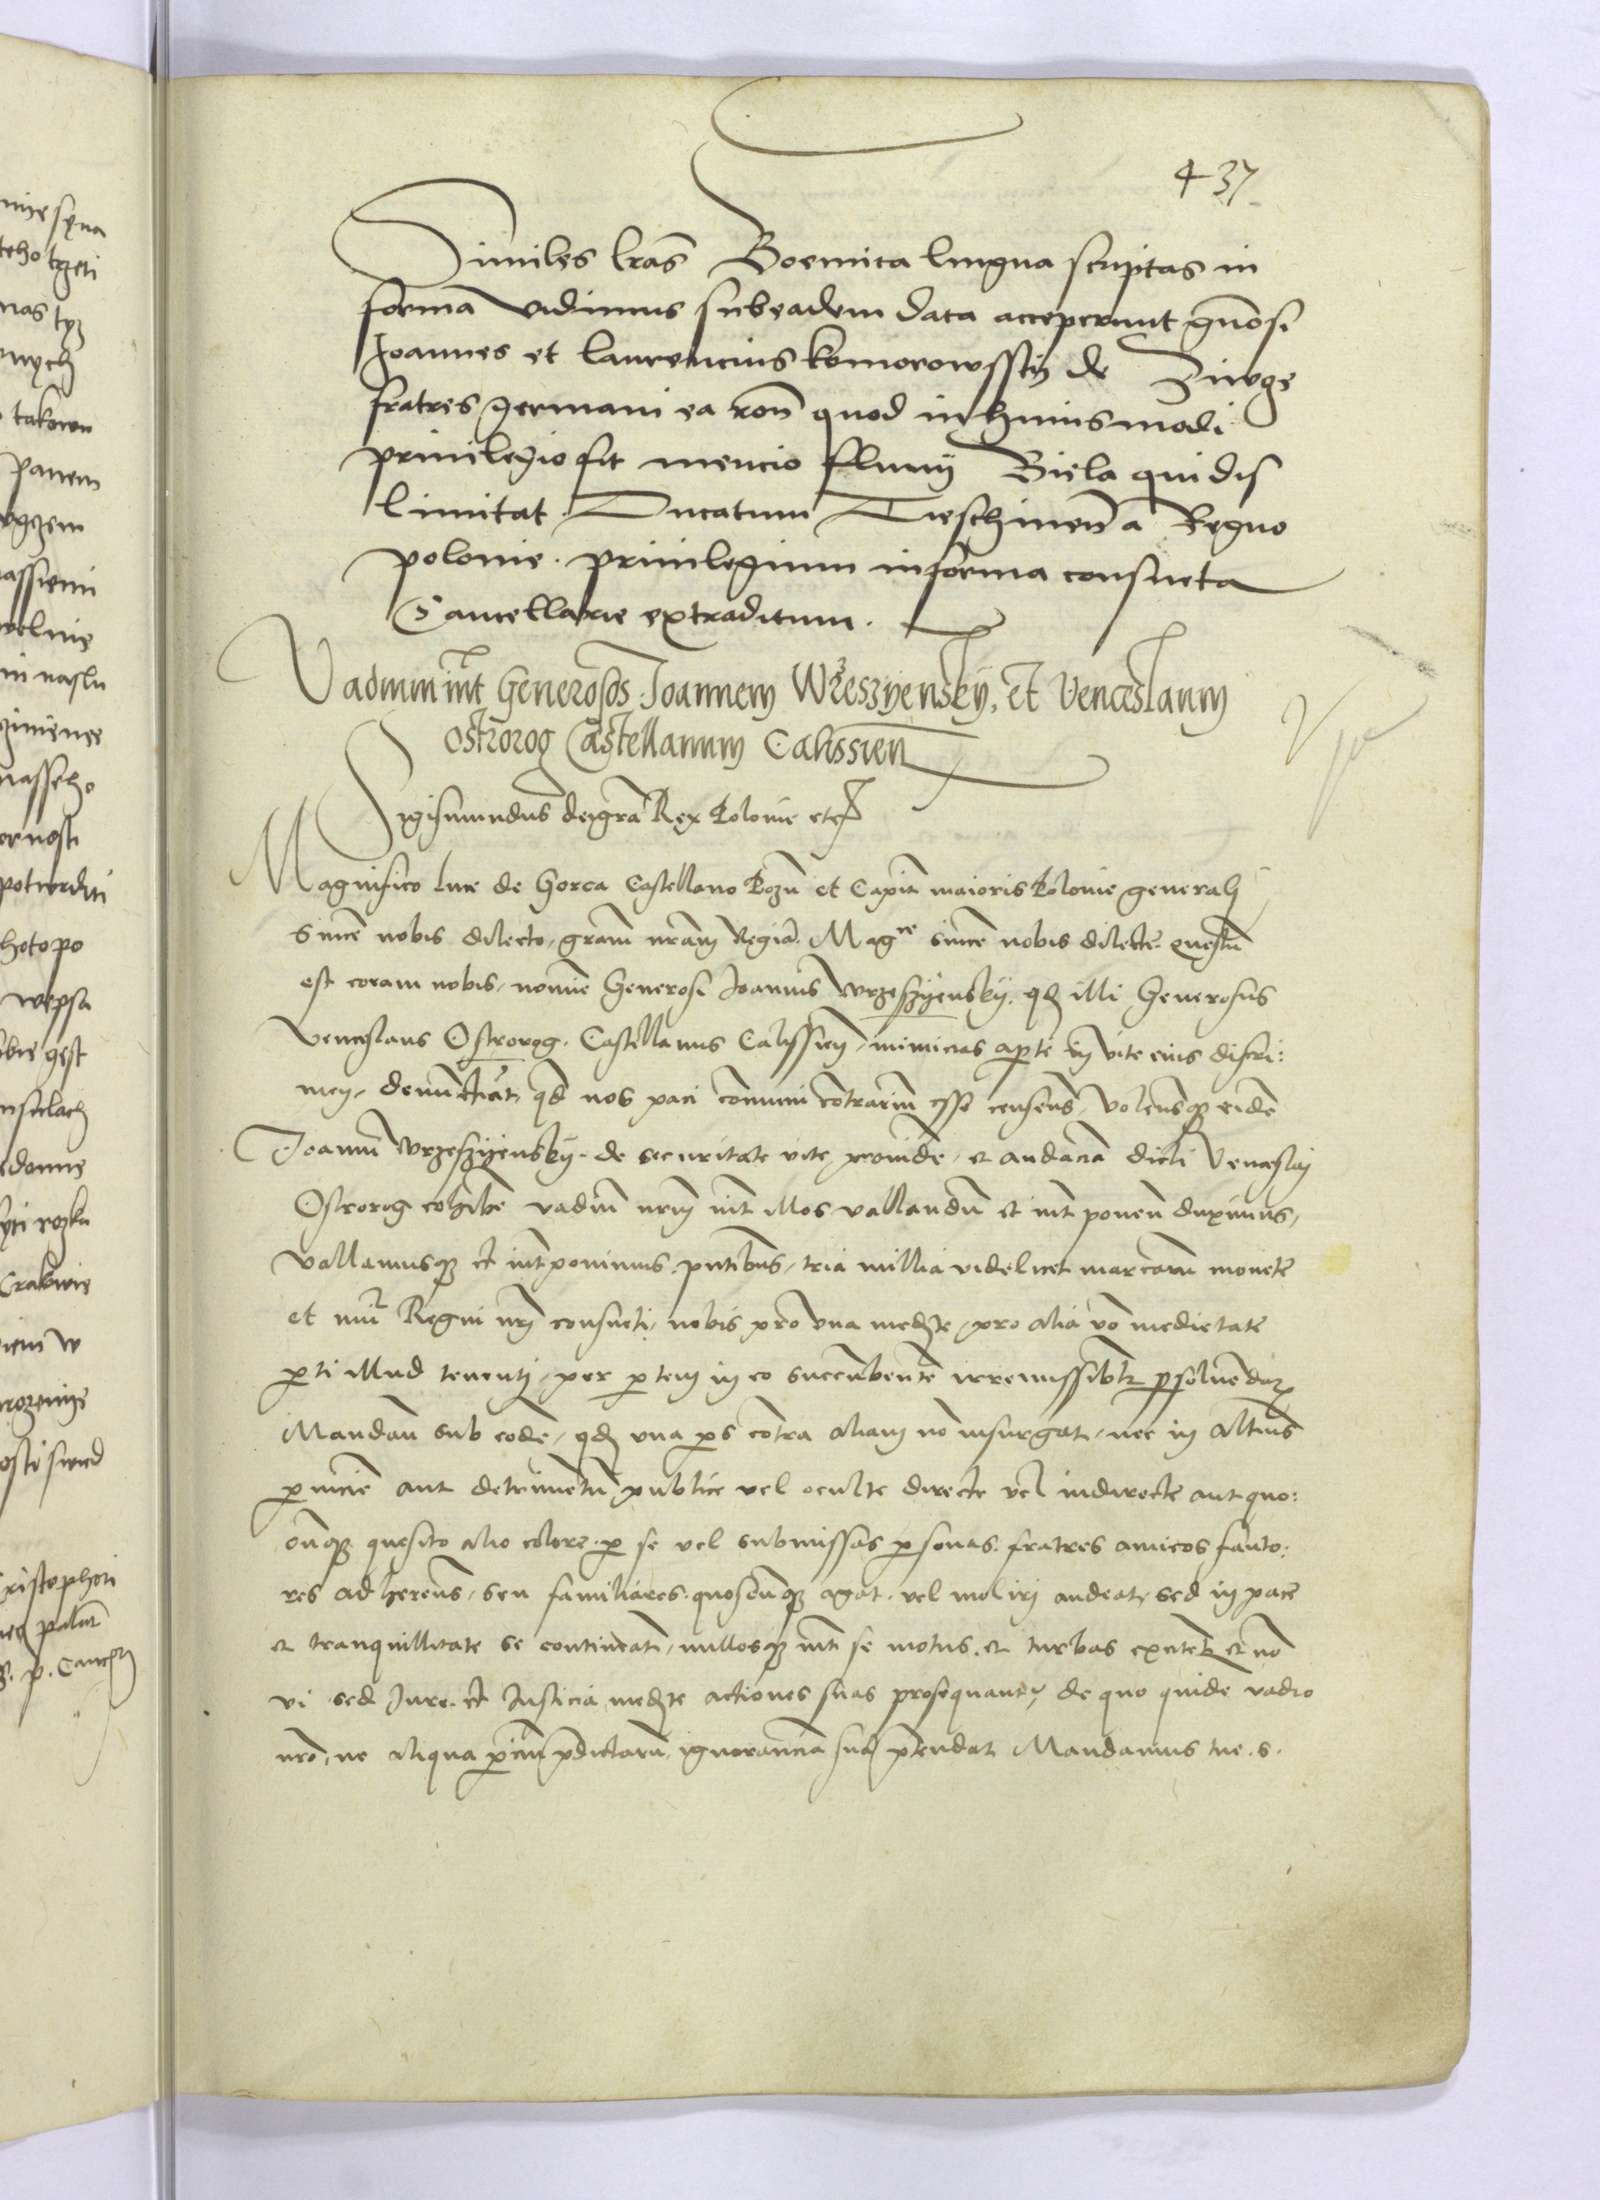 437
Similes lras Boemica lingua scriptas in
forma vidimus sub eadem data acceperunt gnosi
Joannes et Laurencius Komorowsstij de Ziwge
fratres germani ea ron quod in huiusmodi
privilegio fit mencio fluvij Biela qui dis
limitat Ducatum Tieschinen a Regno
polonie. privilegium in forma consueta
Cancellarie extraditum.
Vadium int Generosos Joannem Wrzeszyensky. et Venceslaum
Ostrorog Castellanum Calissien
Sigismundus dei gra Rex Polonie etc
Magnifico Luce de Gorca Castellano Pozn et Capit maioris Polonie generalj
since nobis dilecto, gram nram Regia. Magce since nobis dilecte. questu
est coram nobis, nomine Generosi Joannis Wrzeszyensky. qd illi Generosus
Venceslaus Ostrorog. Castellanus Calissien, inimicias aperte in vite eius discri:
men, denunctiat, qd nos paci comuni contrarium esse censens, volensq eide
Joanni Wrzeszyensky. de securitate vite providē, et audacia dicti Venceslaj
Ostrorog cohibē vadiū nrm int illos vallandū et int ponen duximus,
vallamusq et intponimus pntibus, tria millia videlicet marcarū monete
et nui Regni nrj consueti, nobis pro una medte, pro alia vo medietate
pti illud tenentj, per ptem in eo succubente irremissiblr psolvendaR
Mandan sub eode, qd una ps cotra aliam no insurgat, nec in altius
pnicie aut detrimetū publice vel oculte directe vel indirecte aut quo:
cūq quesito alio colore. p se vel submissas psonas. fratres amicos fauto:
res adherens, seu familiares. quoscūq agat. vel molirj audeat, sed in pace
et tranquillitate se contineat, nullosq int se motus. et turbas excitet et no
vi sed Jure. et Justicia medte actiones suas prosequantr, de quo quide vadio
nro, ne aliqua pcium pdictaru, ignorancia sua ptendat Mandamus tue. s.